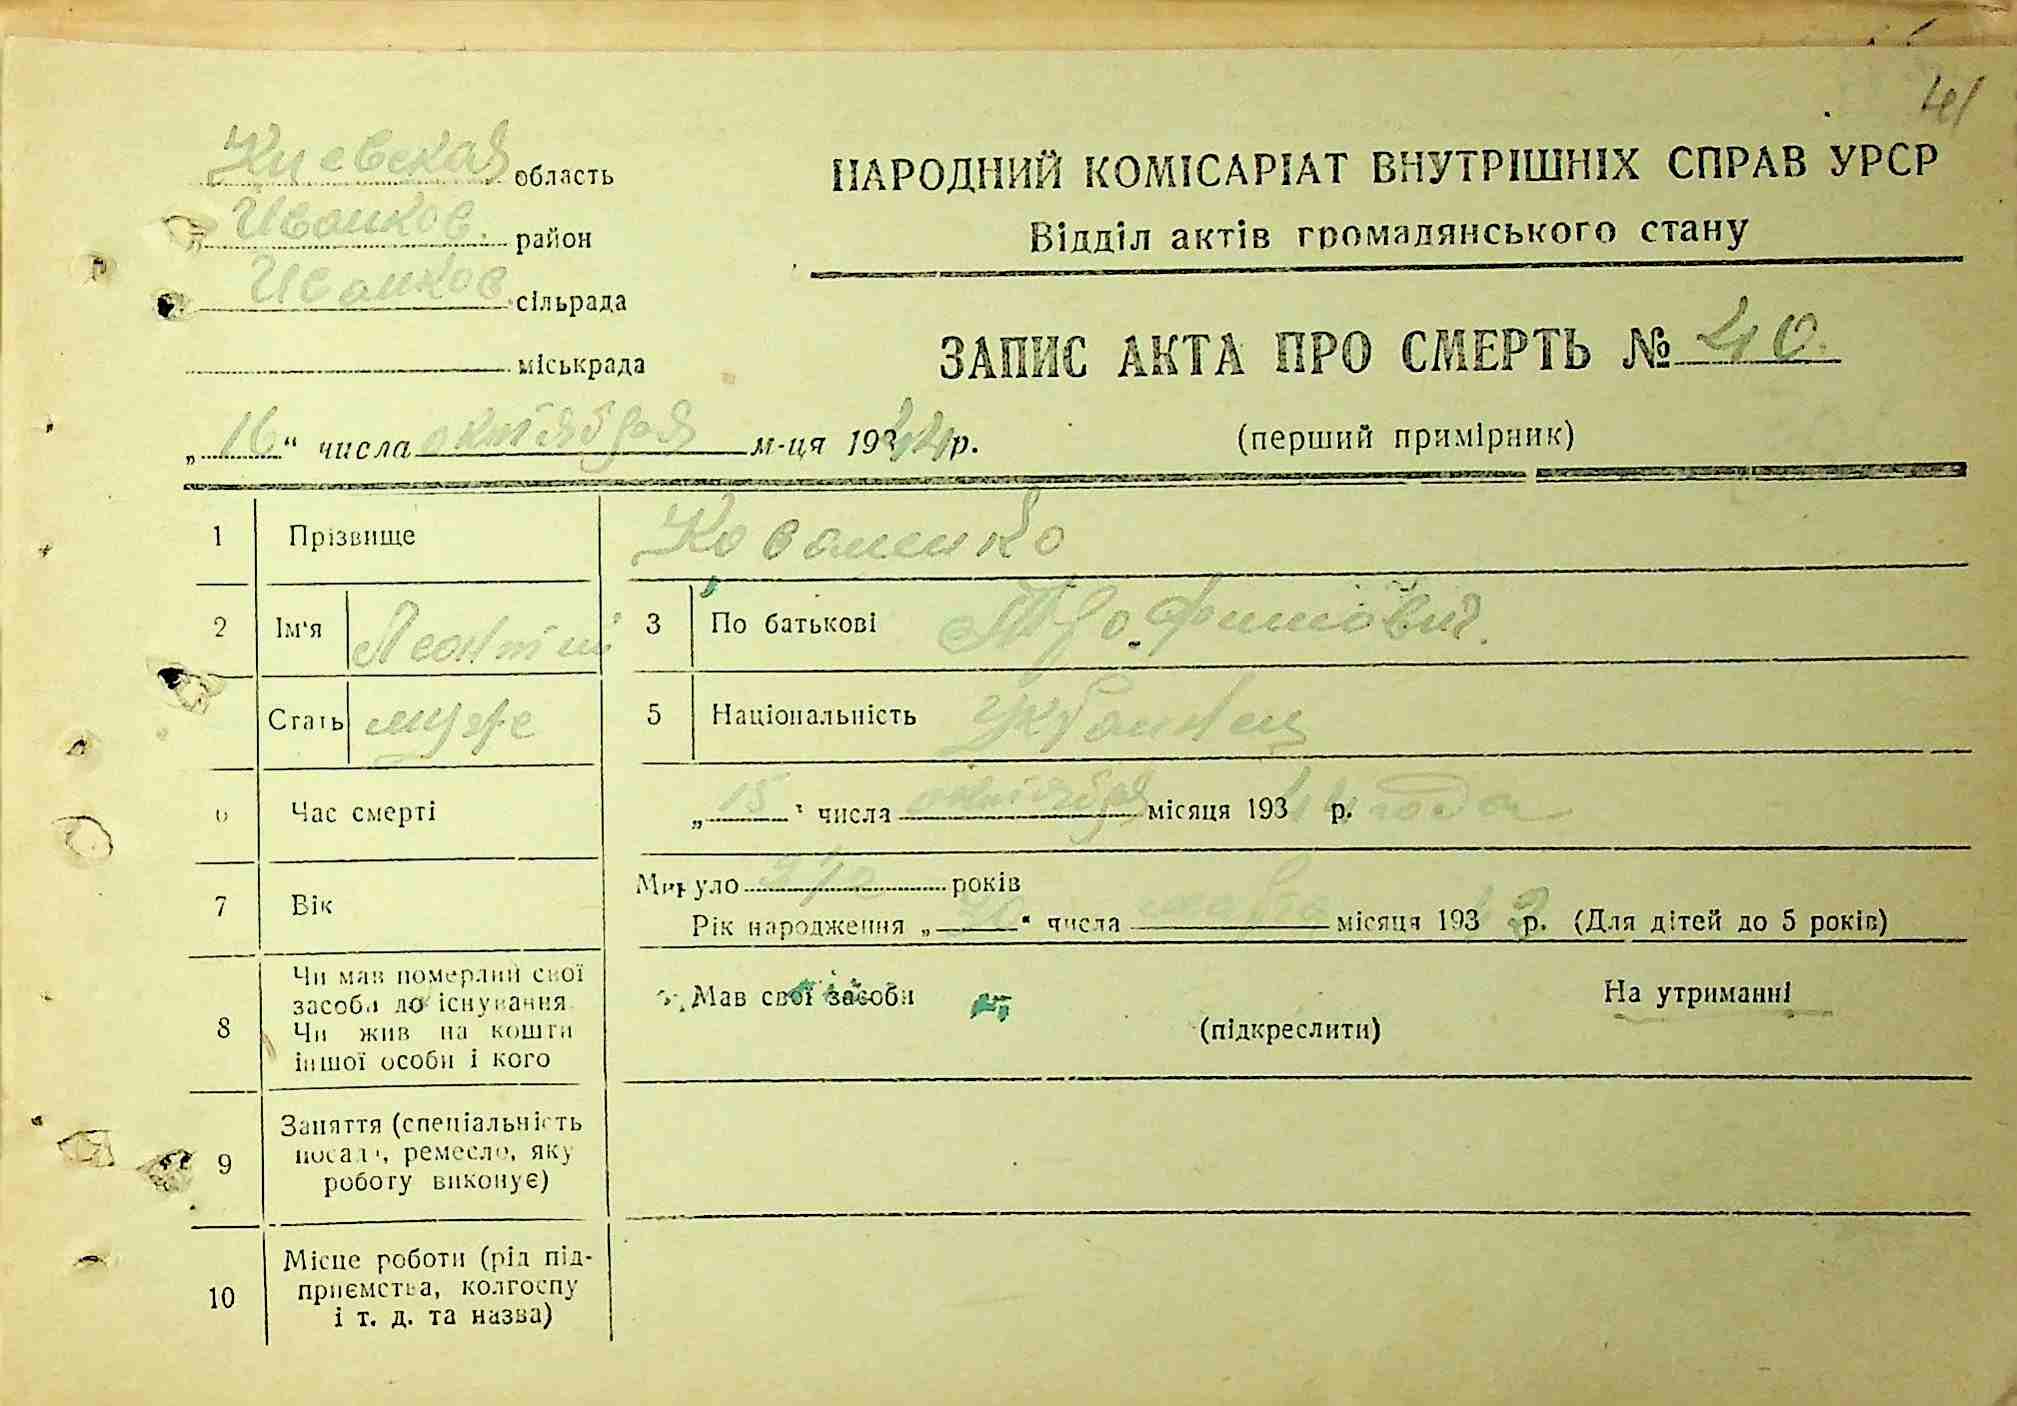 41
Киевская область
Иванков. район
Иванков. сільрада
міськрада
НАРОДНИЙ КОМІСАРІАТ ВНУТРІШНІХ СПРАВ УРСР
Відділ актів громадянського стану
ЗАПИС АКТА ПРО СМЕРТЬ № 40.
(перший примірник)
„16“ числа октября м-ця 1944 р.
1 Прізвище Коваленко
2 Ім'я Леонтий 3 По батькові Трофимович.
Стать муж 5 Національність Украинец
6 Час смерті „15“ числа октября місяця 193 44 года р.
7 Вік Минуло років
Рік народження „20“ числа марта місяця 193 р. (Для дітей до 5 років)
8 Чи мав померлий свої засоби до існування. Чи жив на кошти іншої особи і кого
Мав свої засоби На утриманні
(підкреслити)
9 Заняття (спеціальність посада, ремесло, яку роботу виконує)
10 Місце роботи (рід підприємства, колгоспу і т. д. та назва)